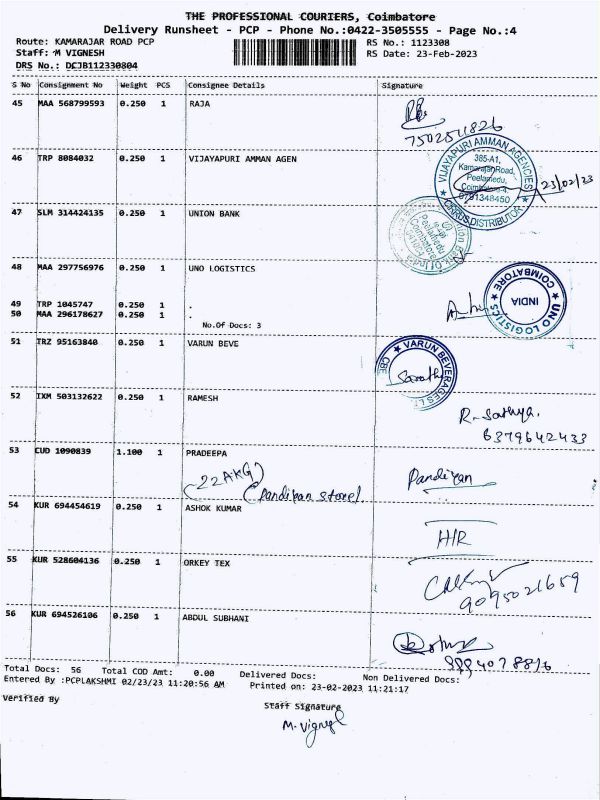 THE PROFESSIONAL COURIERS, Coimbatore
Delivery Runsheet - PCP - Phone No.:0422-3505555 - Page No.:4
Route: KAMARAJAR ROAD PCP RS No.: 1123308
Staff: M VIGNESH RS Date: 23-Feb-2023
DRS No.: DCJB112330804
S No Consignment No Weight PCS Consignee Details Signature
45 MAA 568799593 0.250 1 RAJA
7502511826
46 TRP 8084032 0.250 1 VIJAYAPURI AMMAN AGEN
VIJAYAPURI AMMAN AGENCIES
385-A1,
Kamarajar Road,
Peelamedu,
Coimbatore-4.
9791348450
DISTRIBUTOR
23/02/23
47 SLM 314424135 0.250 1 UNION BANK
Peelamedu
Coimbatore
48 MAA 297756976 0.250 1 UNO LOGISTICS
49 TRP 1045747 0.250 1 .
50 MAA 296178627 0.250 1 .
No.Of Docs: 3
UNO LOGISTICS ★ COIMBATORE ★
INDIA
51 TRZ 95163840 0.250 1 VARUN BEVE
VARUN BEVERAGES
CBE
Sarath
52 IXM 503132622 0.250 1 RAMESH
R. Sathya.
6379642433
53 CUD 1090839 1.100 1 PRADEEPA
(22AKG)
(Pandiyan store)
Pandiyan
54 KUR 694454619 0.250 1 ASHOK KUMAR
H/R
55 KUR 528604136 0.250 1 ORKEY TEX
9095021659
56 KUR 694526106 0.250 1 ABDUL SUBHANI
Total Docs: 56 Total COD Amt: 0.00 Delivered Docs: Non Delivered Docs:
Entered By :PCPLAKSHMI 02/23/23 11:20:56 AM Printed on: 23-02-2023 11:21:17
Verified By Staff Signature
M. Vignesh